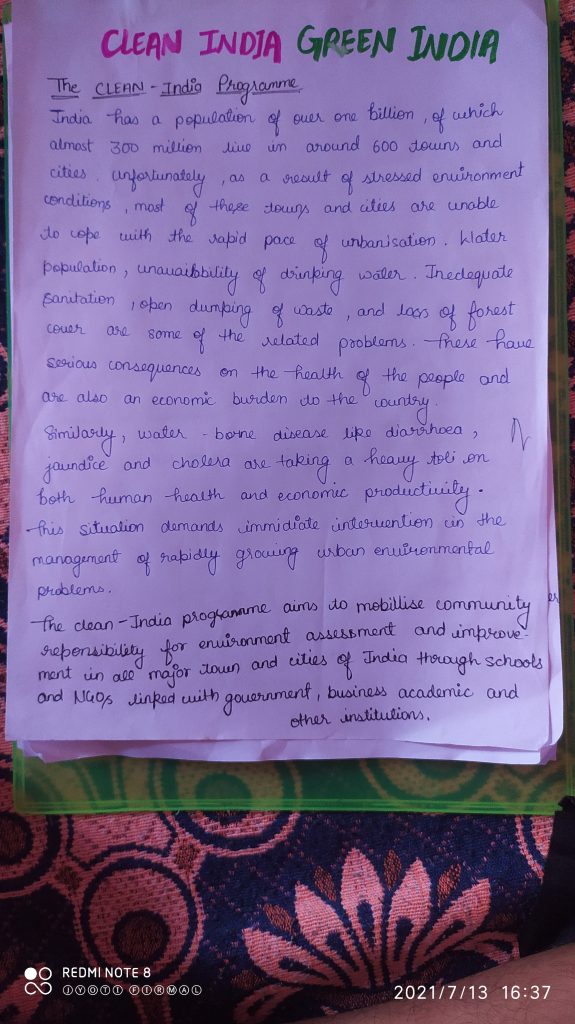 CLEAN INDIA GREEN INDIA
The CLEAN - India Programme
India has a population of over one billion, of which
almost 300 million live in around 600 towns and
cities. unfortunately, as a result of stressed environment
conditions, most of these towns and cities are unable
to cope with the rapid pace of urbanisation. Water
population, unavaibbility of drinking water. Inedequate
sanitation, open dumping of waste, and loss of forest
cover are some of the related problems. These have
serious consequences on the health of the people and
are also an economic burden to the country.
Similarly, water - borne disease like diarrhoea,
jaundice and cholera are taking a heavy toll on
both human health and economic productivity.
This situation demands immidiate intervention in the
management of rapidly growing urban environmental
problems.
The clean - India programme aims to mobillise community
reponsibility for environment assessment and improve-
ment in all major town and cities of India through schools
and NGO/s linked with government, business academic and
other institutions.
REDMI NOTE 8
JYOTI FIRMAL
2021/7/13 16:37